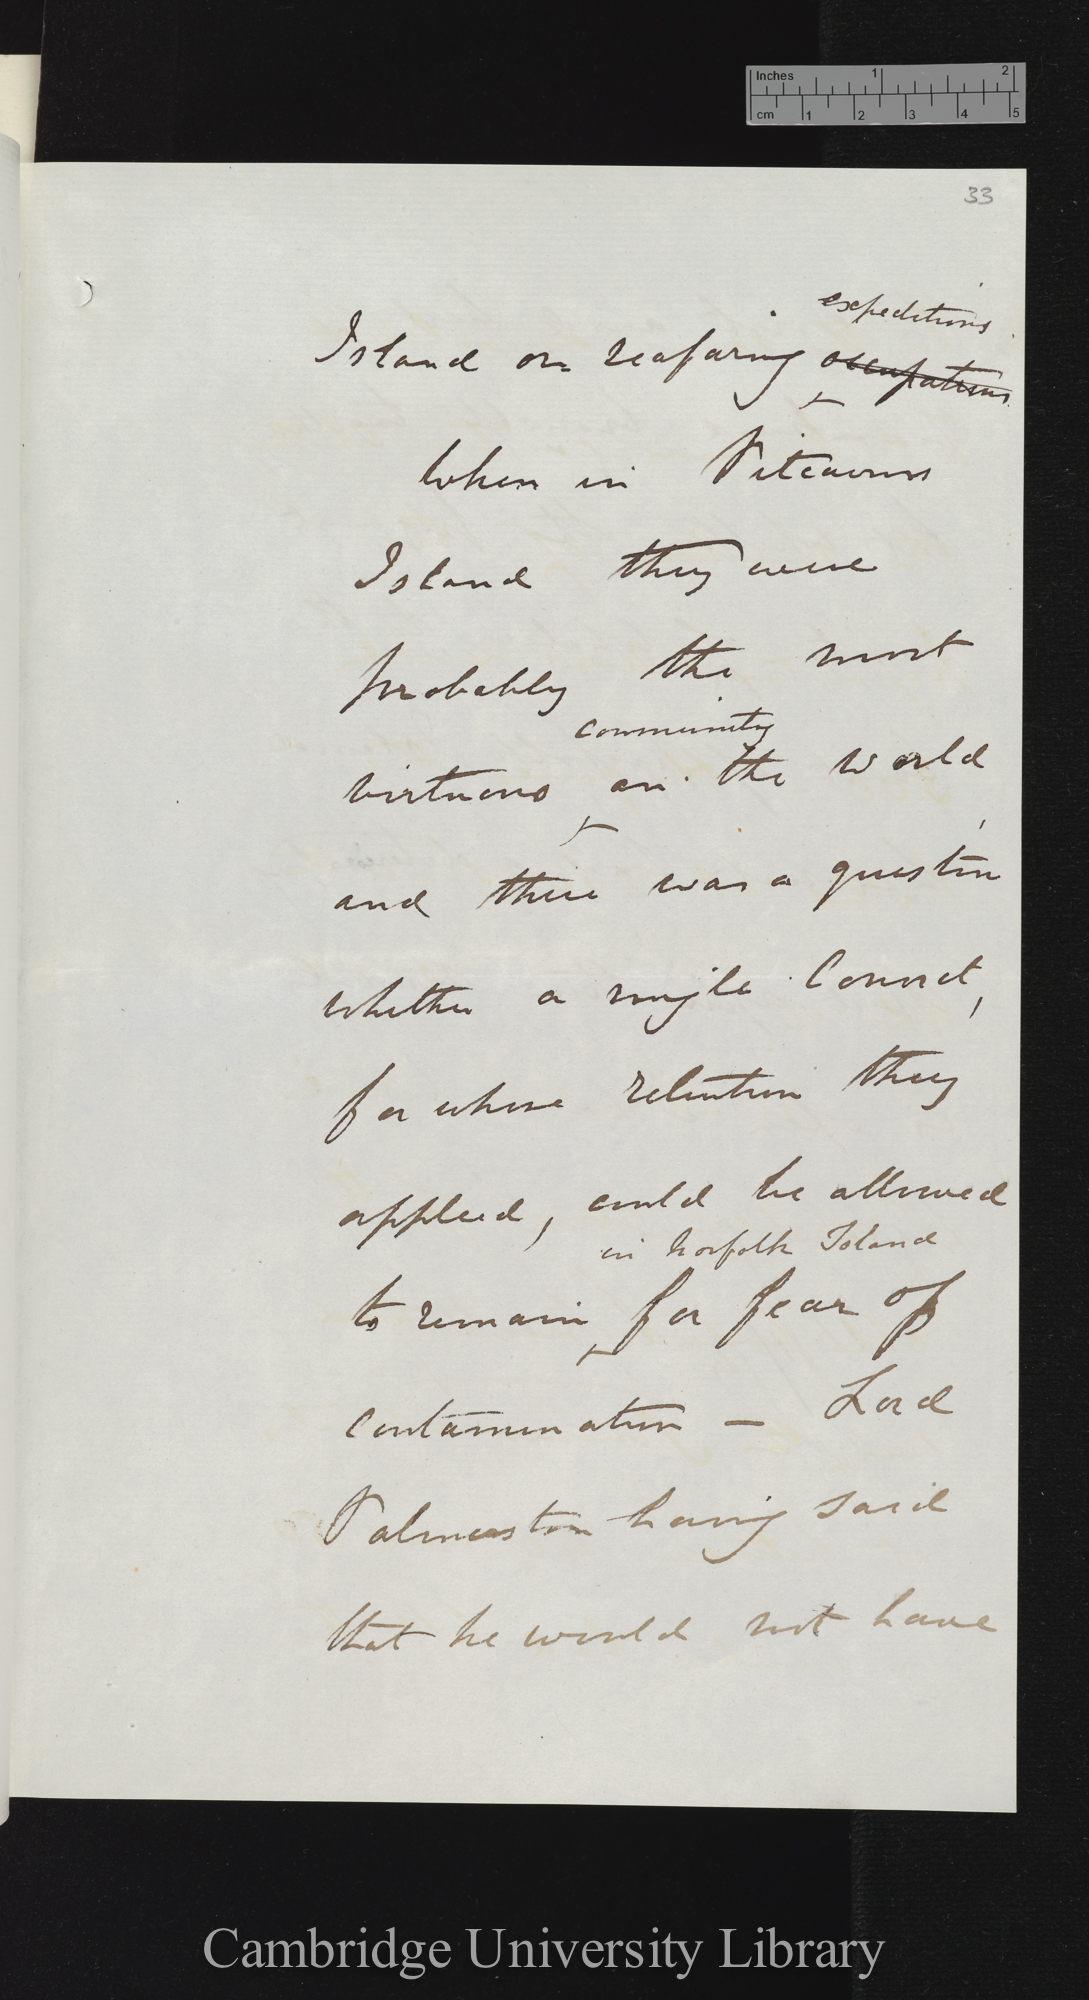 Inches 1 2
cm 1 2 3 4 5
33
expeditions
Island on seafaring occupations
When in Pitcairns
Island they were
probably the most
community
virtuous in the world
and there was a question
whether a single Convict,
for whose retention they
applied, could be allowed
in Norfolk Island
to remain for fear of
contamination — Lord
Palmerston having said
that he would not have
Cambridge University Library